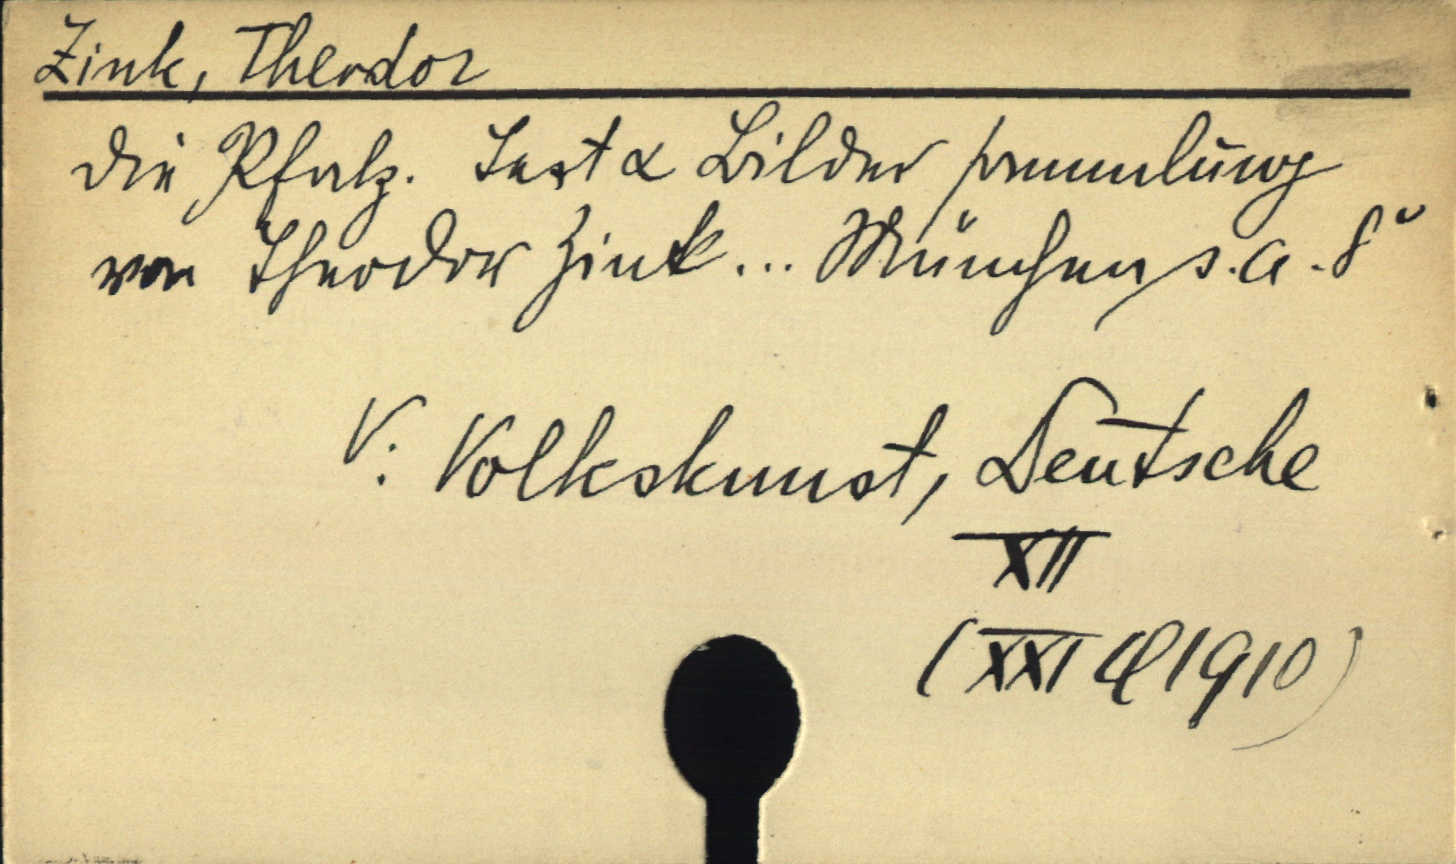 Zink, Theodor
Die Pfalz. Text & Bildersammlung
von Theodor Zink... München s.a. 8°
V: Volkskunst, Deutsche
XII
(XXI 1910)